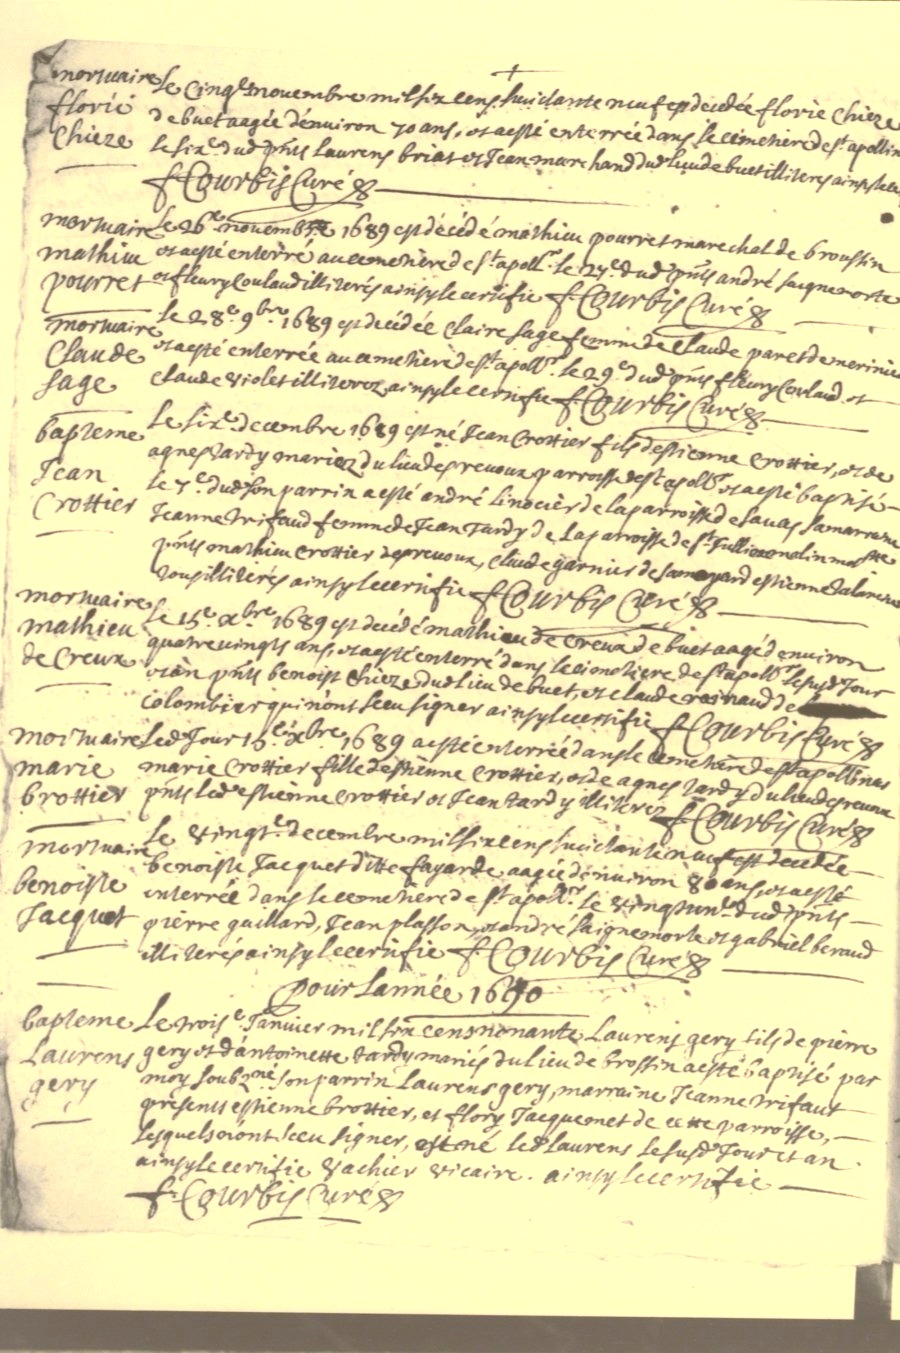 mortuaire
florie
Chieze
Le cinqe novembre mil six cens huictante neuf est decedée florie Chieze
de buet aagée denviron 70 ans, et a esté enterrée dans le cemetiere de st apollin
le sixe dud pnts Laurens briat et Jean marchand dud lieu de buet illiterés ainsy le
f Courbis Curé
mortuaire
mathieu
pourret
Le 26me novembre 1689 est décédé mathieu pourret marechal de broussin
et a esté enterré au cemetiere de st apollr le 27e dud pnts andré saignemorte
et fleury Coulaud illiterés ainsy le certifie f Courbis Curé
mortuaire
Claude
sage
Le 28e 9bre 1689 est décédée Claire sage femme de Claude paret de
et a esté enterrée au cemetiere de st apollr le 29e dud pnts fleury Coulaud et
Claude violet illiterez ainsy le certifie f Courbis Curé
bapteme
Jean
Crottier
Le sixe decembre 1689 est né Jean Crottier fils destienne Crottier, et de
agnes tardy mariez du lieu de prevoux parroisse de st apollr et a esté baptisé
le 7e dud son parrin a esté andré Linocier de la parroisse de savas sa marraine
Jeanne trifaud femme de Jean Tardy de la parroisse de st Jullien molin molette
pnts mathieu Crottier de prevoux, Claude garnier de estienne
tous illiterés ainsy le certifie f Courbis Curé
mortuaire
mathieu
de Creux
Le 15e xbre 1689 est decédé mathieu de Creux de buet aagé denviron
quatre vingts ans, et a esté enterré dans le cimetiere de st apollr le susd Jour
et an pnts benoist Chieze dud lieu de buet, et Claude reinaud de
Colombier qui nont sceu signer ainsy le certifie f Courbis Curé
mortuaire
marie
Crottier
Led Jour 15e xbre 1689 a esté enterrée dans le cemetiere de st apollinar
marie Crottier fille destienne Crottier, et de agnes tardy du lieu de prevoux
pnts led estienne Crottier et Jean tardy illiterez f Courbis Curé
mortuaire
benoiste
Jacquet
Le vingte decembre mil six cens huictante neuf est decedée
benoiste Jacquet ditte fayarde aagée denviron 80 ans, et a esté
enterrée dans le cemetiere de st apollr le vingt une dud pnts
pierre guillard, Jean plasson, et andré saignemorte et gabriel beraud
illiterés ainsy le certifie f Courbis Curé
pour Lannée 1690
bapteme
Laurens
gery
Le troise Janvier mil six cens nonante Laurens gery fils de pierre
gery et dantoinette tardy mariés du lieu de brossin a esté baptisé par
moy soubzné son parrin Laurens gery, marraine Jeanne trifaut
présents estienne Crottier, et flory Jacquemet de cette parroisse,
lesquels nont sceu signer, est né led Laurens le susd Jour et an
ainsy le certifie vachier vicaire. ainsy le certifie
f Courbis Curé